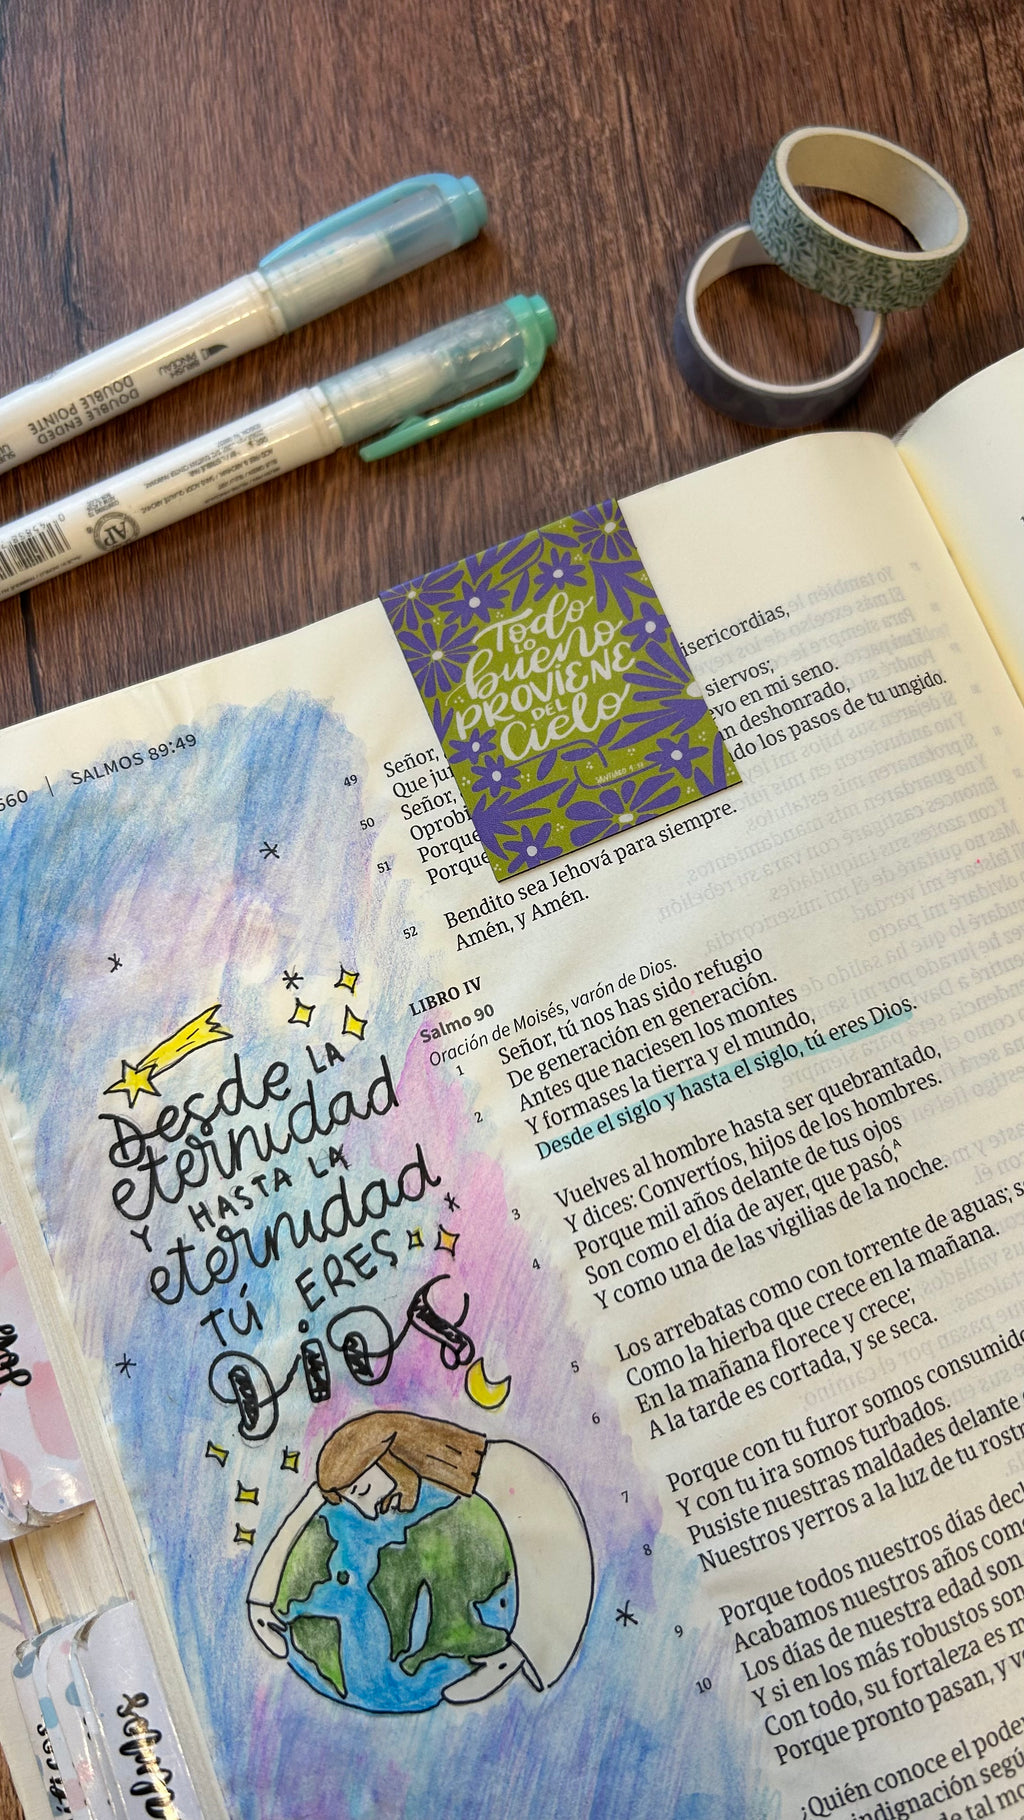 BRUSH
PINCEAU
DOUBLE ENDED
DOUBLE POINTE
AP
Todo
LO
bueno
PROVIENE
DEL
Cielo
SANTIAGO 1:17
560 | SALMOS 89:49
49 Señor,
isericordias,
Que ju
Señor,
siervos;
50 Oprobi
vo en mi seno.
51 Porque
n deshonrado,
Porque
do los pasos de tu ungido.
52 Bendito sea Jehová para siempre.
Amén, y Amén.
LIBRO IV
Salmo 90
Oración de Moisés, varón de Dios.
1 Señor, tú nos has sido refugio
De generación en generación.
2 Antes que naciesen los montes
Y formases la tierra y el mundo,
Desde el siglo y hasta el siglo, tú eres Dios.
3 Vuelves al hombre hasta ser quebrantado,
Y dices: Convertíos, hijos de los hombres.
4 Porque mil años delante de tus ojos
Son como el día de ayer, que pasó,A
Y como una de las vigilias de la noche.
5 Los arrebatas como con torrente de aguas;
Como la hierba que crece en la mañana.
6 En la mañana florece y crece;
A la tarde es cortada, y se seca.
7 Porque con tu furor somos consumido
Y con tu ira somos turbados.
8 Pusiste nuestras maldades delante
Nuestros yerros a la luz de tu rostr
9 Porque todos nuestros días decl
Acabamos nuestros años com
10 Los días de nuestra edad son
Y si en los más robustos son
Con todo, su fortaleza es m
Porque pronto pasan, y v
¿Quién conoce el poder
indignación segú
tal mo
Desde LA
eternidad
Y HASTA LA
eternidad
TÚ ERES
DiOS
Salmos